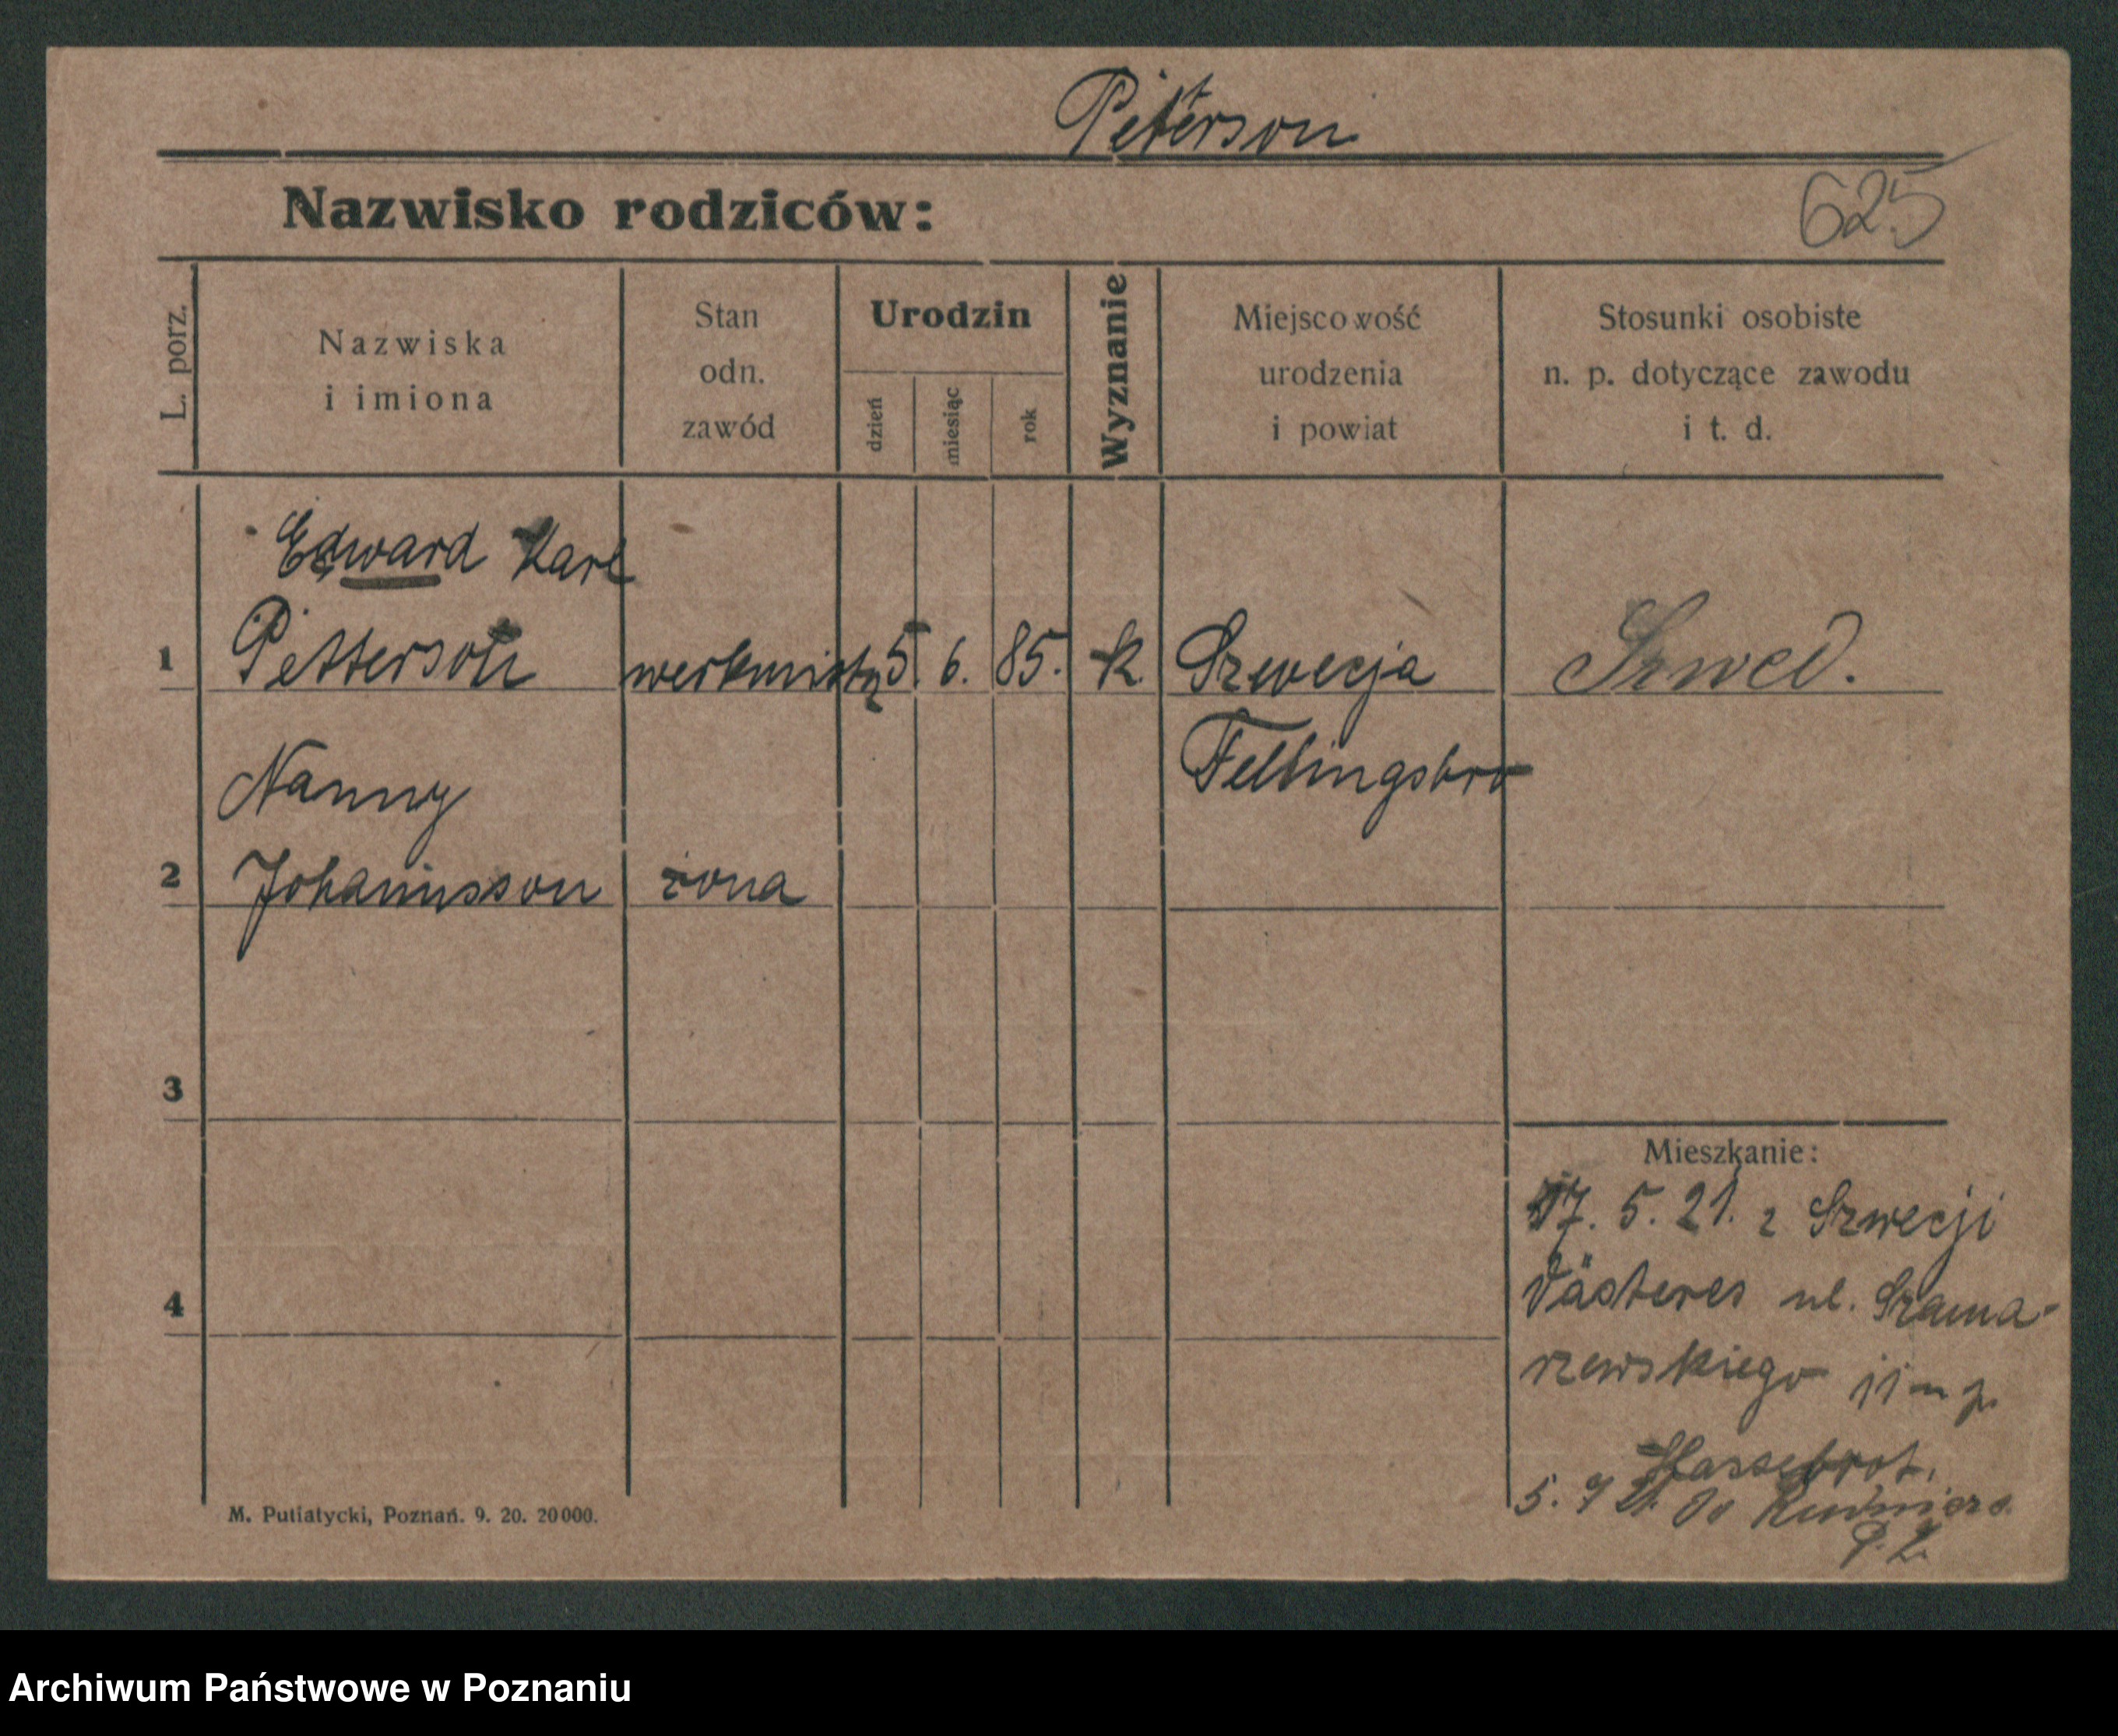 Petterson
Nazwisko rodziców:
625
L. porz.
Nazwiska
i imiona
Stan
odn.
zawód
Urodzin
dzień
miesiąc
rok
Wyznanie
Miejscowość
urodzenia
i powiat
Stosunki osobiste
n. p. dotyczące zawodu
i t. d.
Edward Karl
1 Petterson werkmistrz 5. 6. 85. k Szwecja Szwed.
Nanny Fellingsbro
2 Johannsson żona
3
Mieszkanie:
17. 5. 21. z Szwecji
4 Västeres ul. Szama-
rzewskiego 11 p.
Hassebrot.
5. 9 21. do
M. Putiatycki, Poznań. 9. 20. 20000.
Archiwum Państwowe w Poznaniu